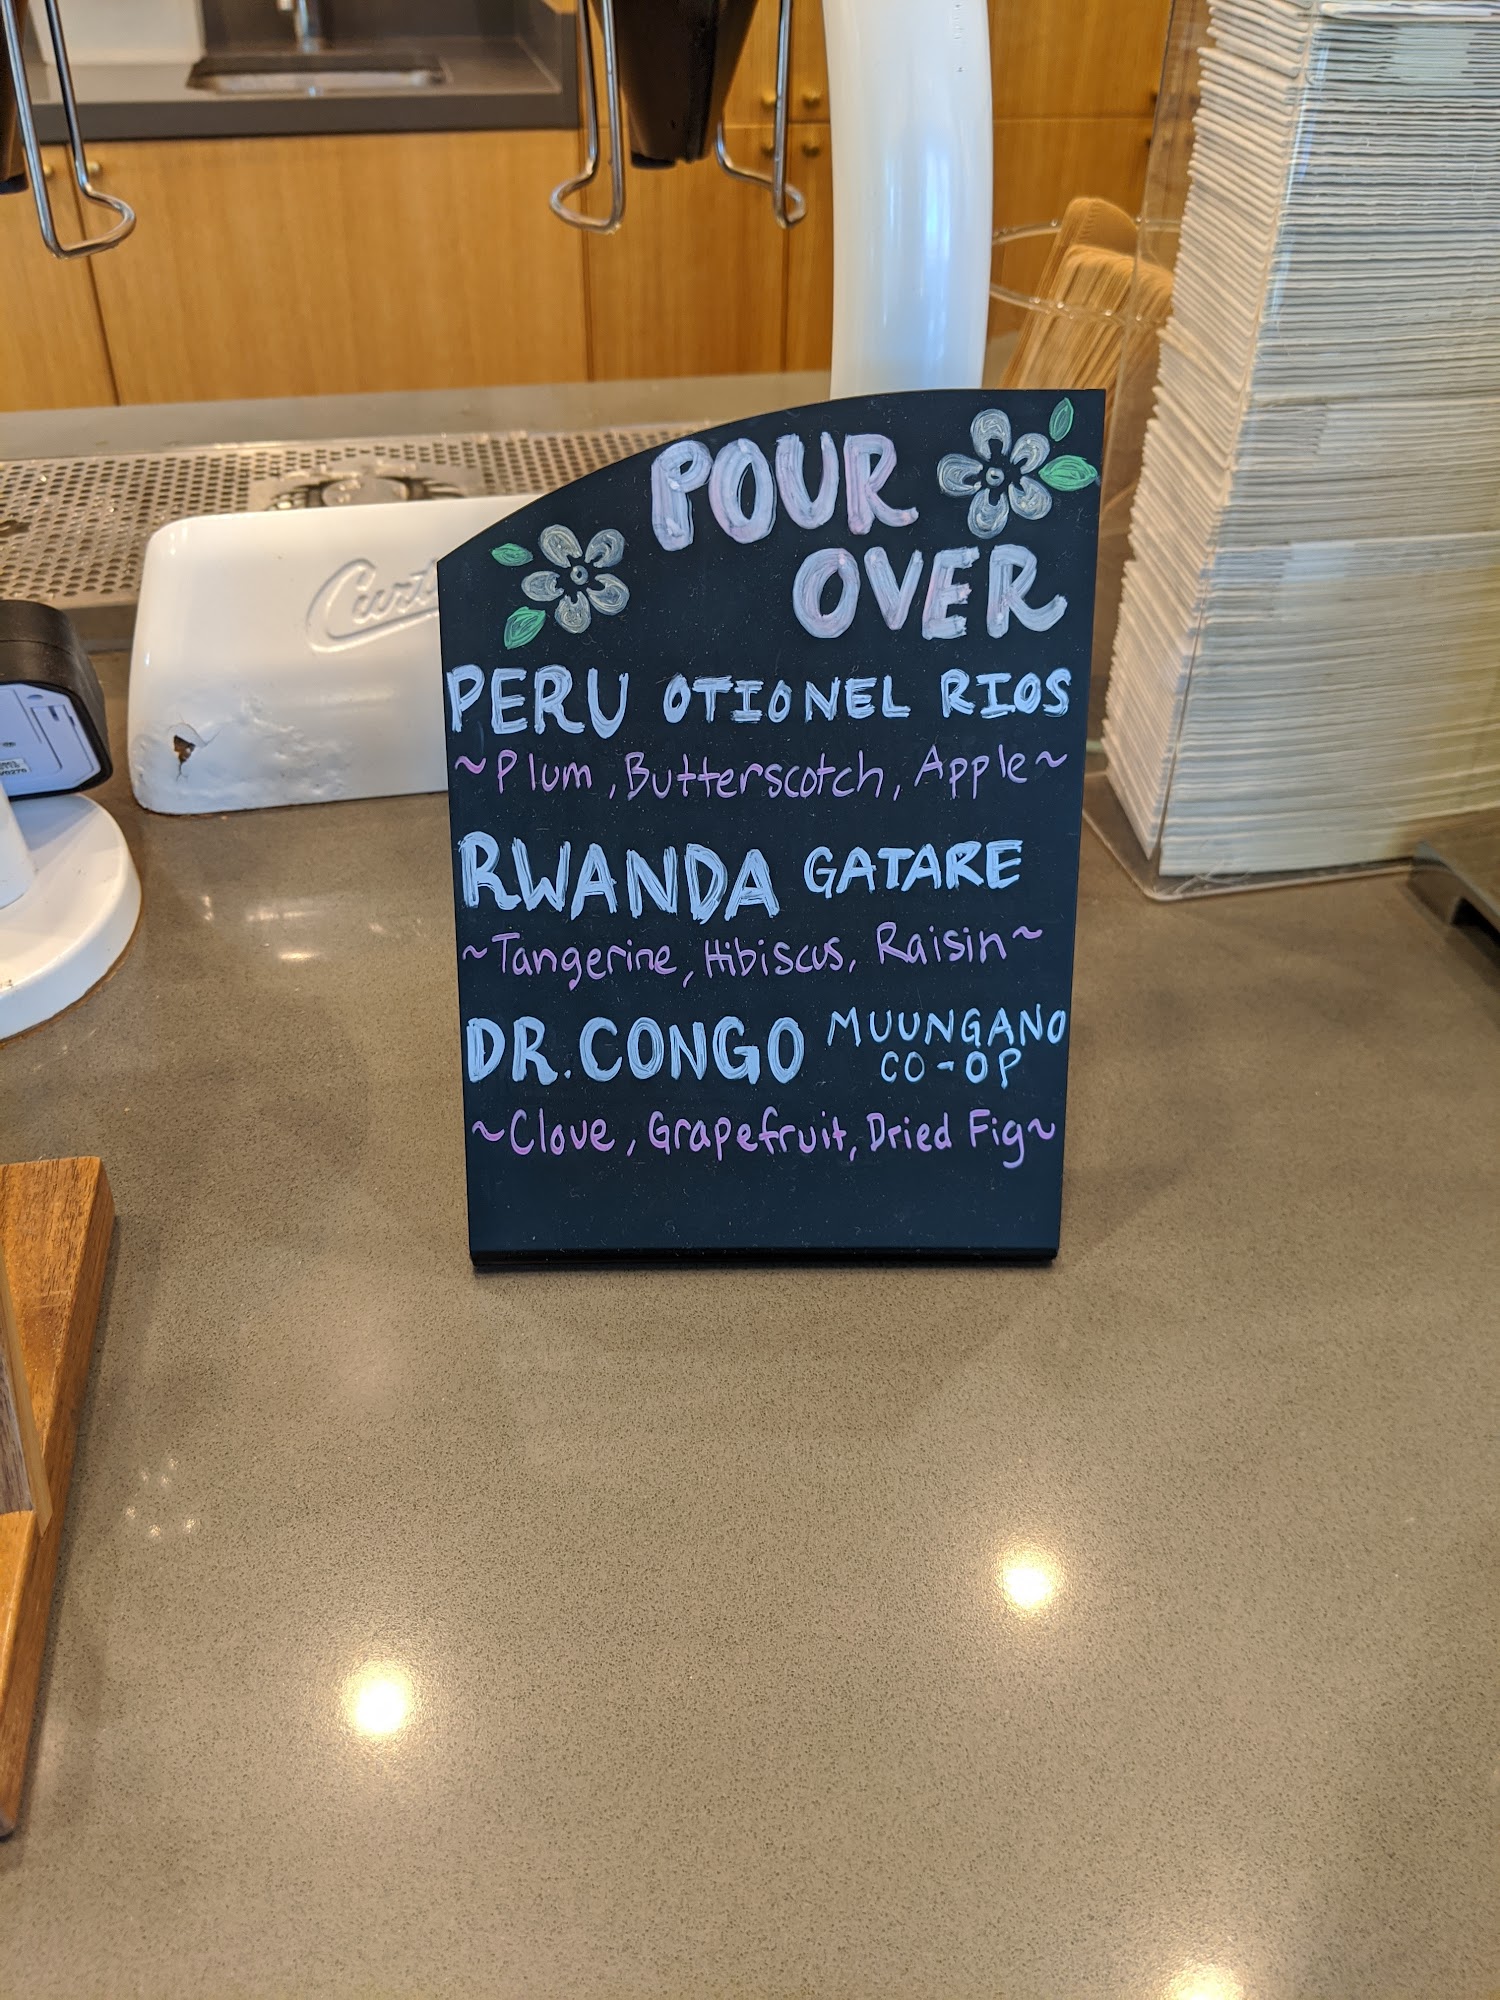 POUR
OVER
PERU OTIONEL RIOS
~Plum, Butterscotch, Apple~
RWANDA GATARE
~Tangerine, Hibiscus, Raisin~
DR. CONGO MUUNGANO
CO-OP
~Clove, Grapefruit, Dried Fig~